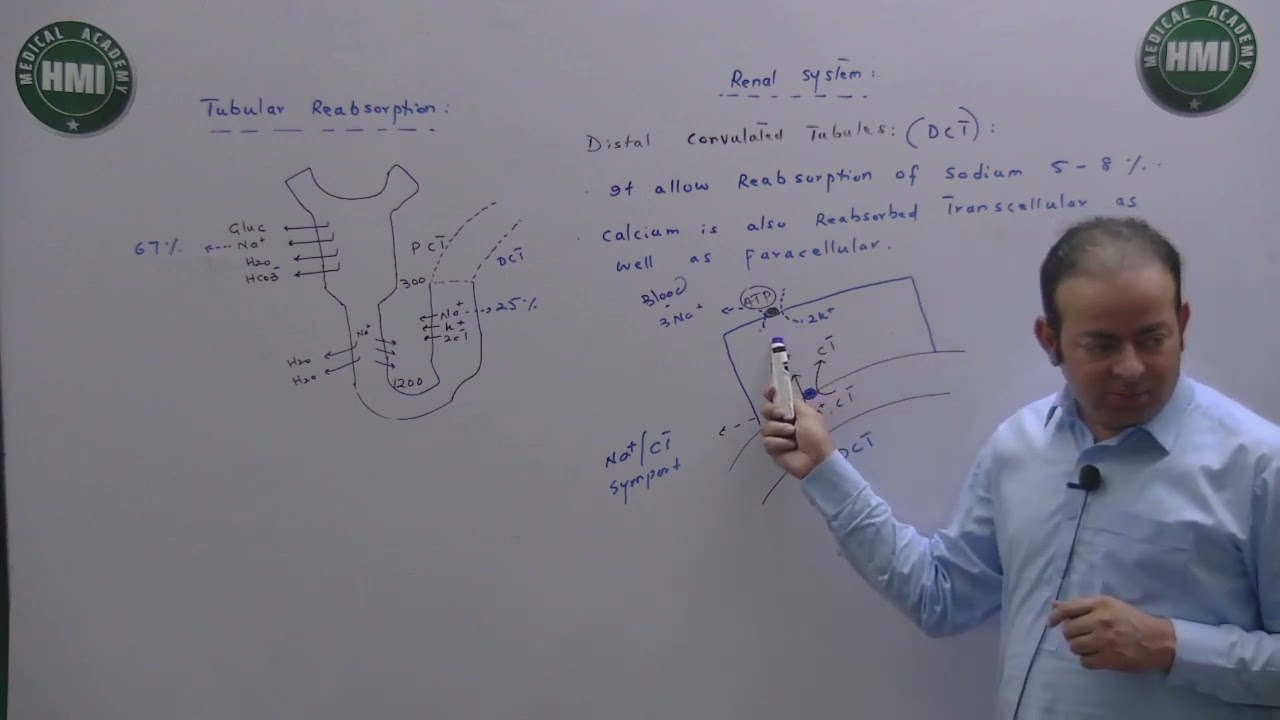 MEDICAL ACADEMY
HMI
MEDICAL ACADEMY
HMI
Tubular Reabsorption:
Gluc
67% Na⁺
H2o
HCo3⁻
PCT
DCT
300
Na⁺ 25%
K⁺
2Cl⁻
Na⁺
H2o
H2o
1200
Renal System:
Distal Convulated Tubules: (DCT):
· It allow Reabsorption of Sodium 5-8%.
· Calcium is also Reabsorbed Transcellular as
well as Paracellular.
Blood
ATP
3Na⁺
2K⁺
Cl⁻
Cl⁻
Na⁺/Cl⁻
Symport
DCT